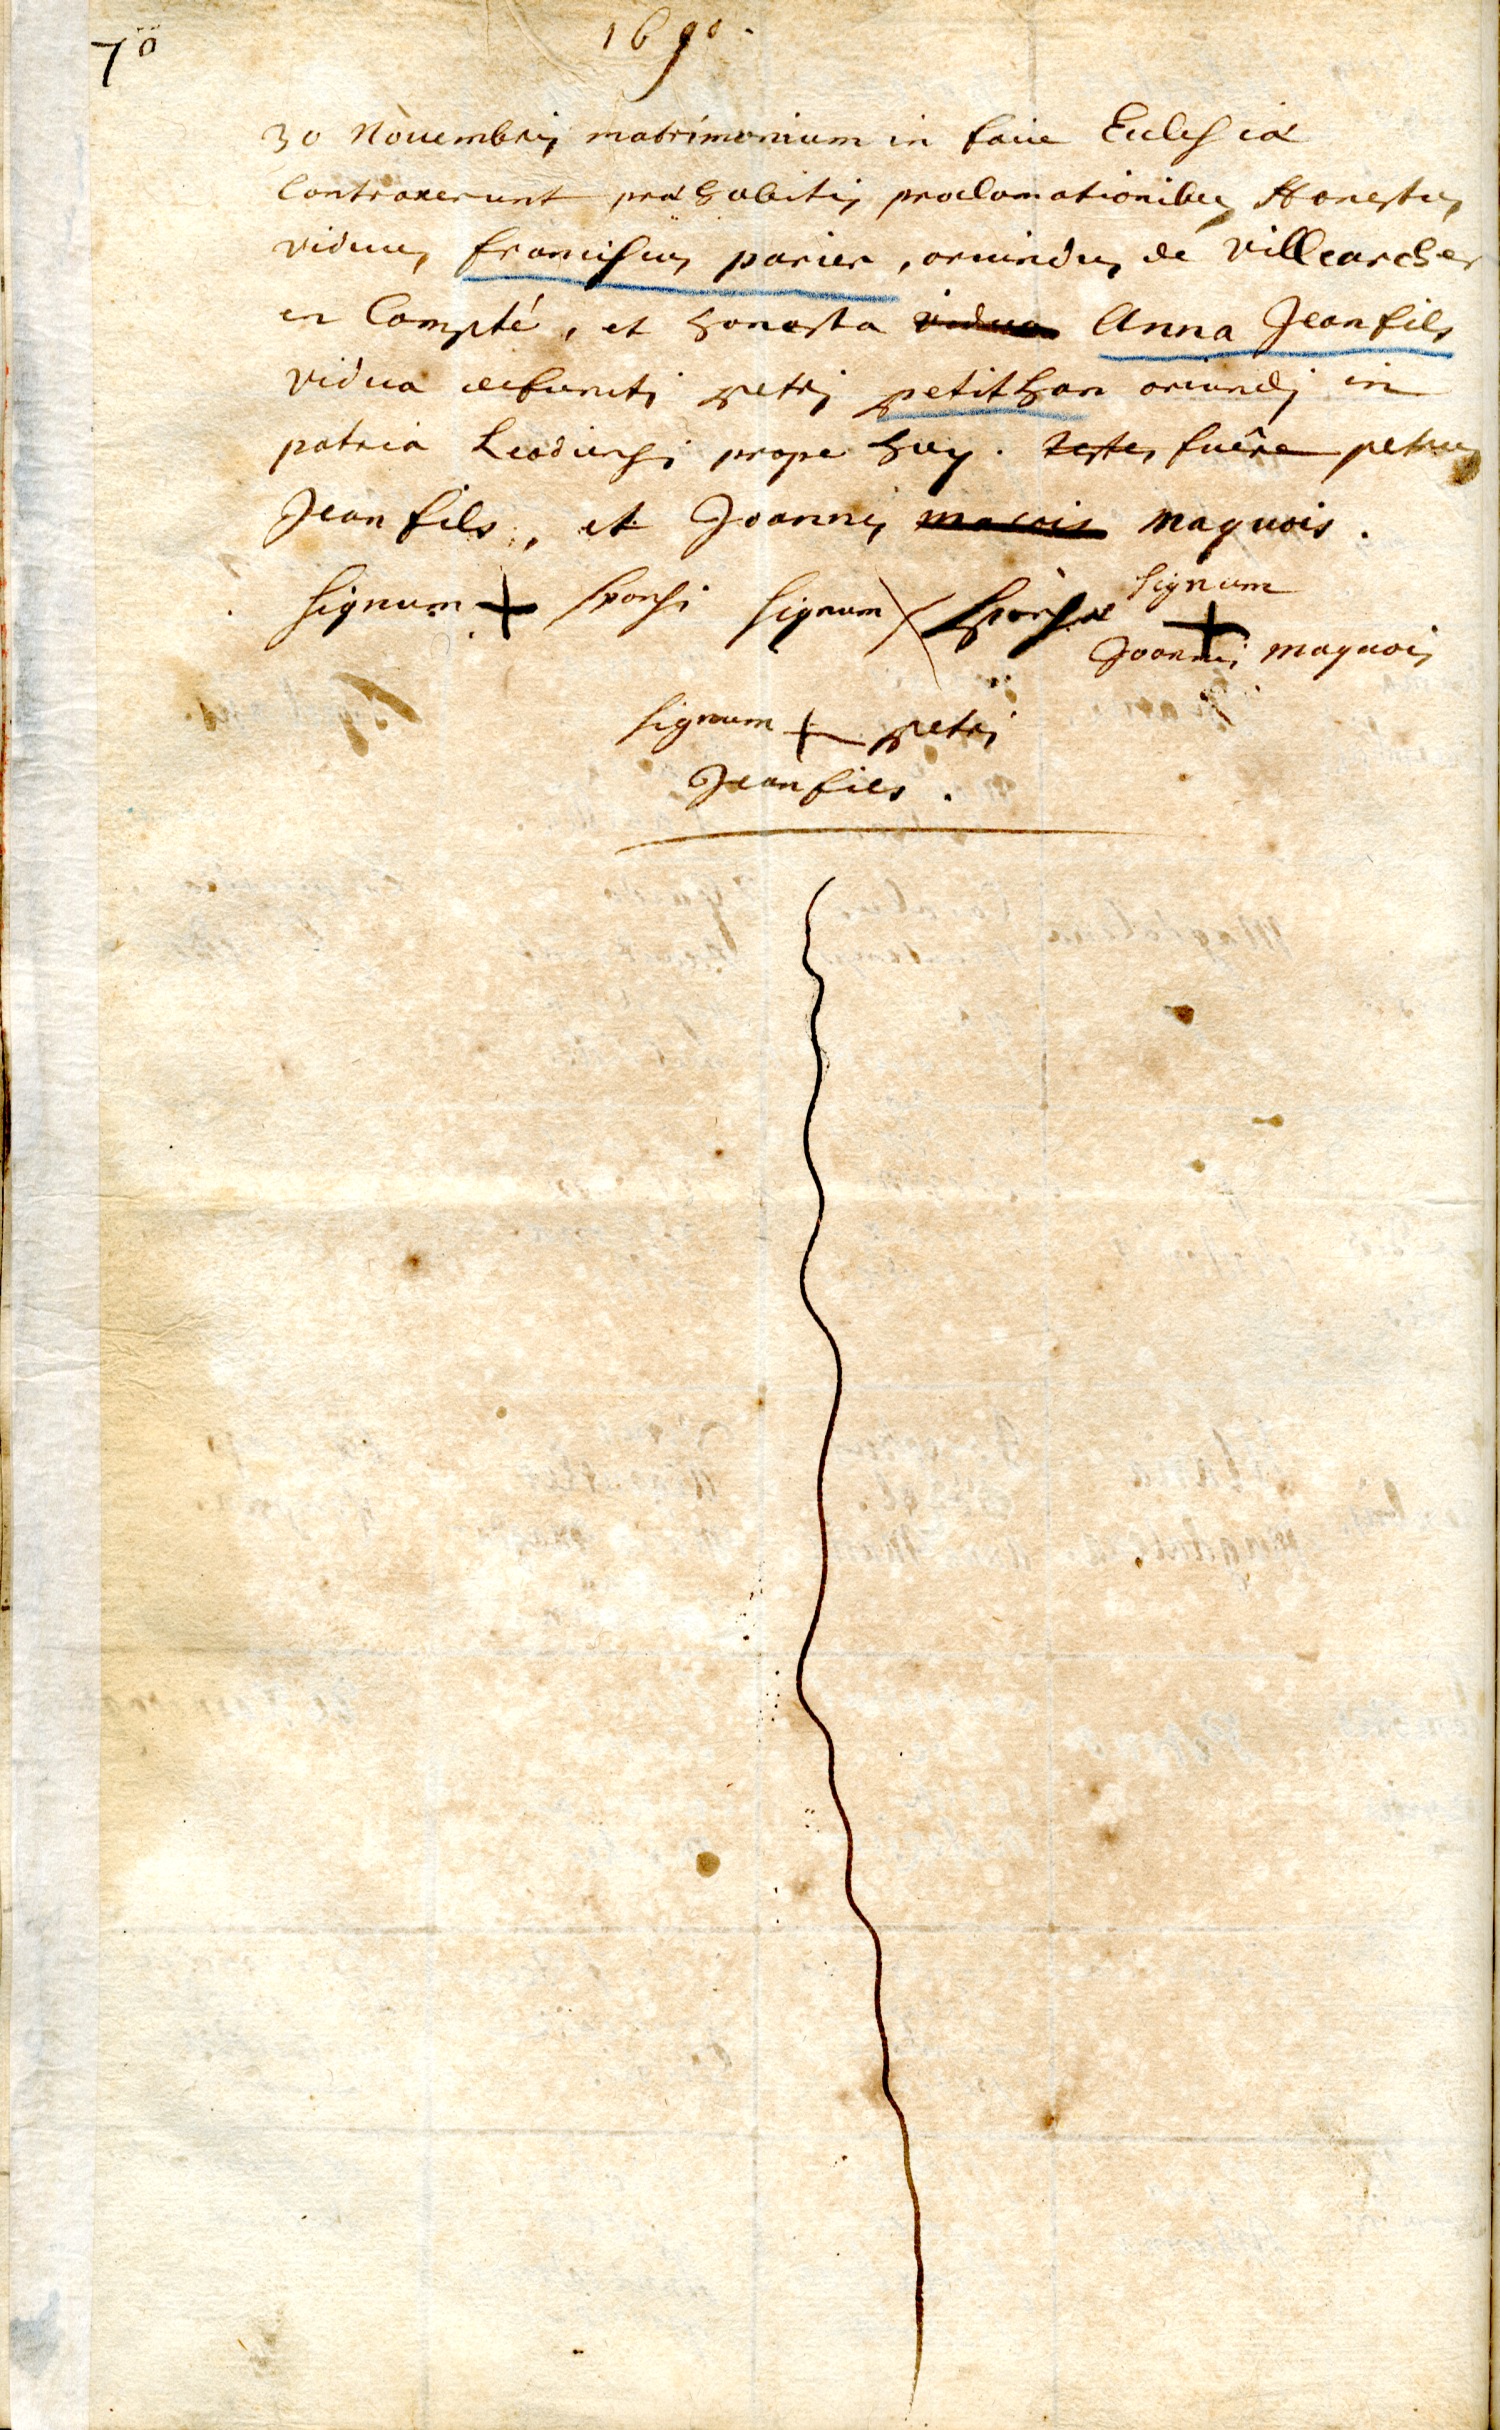 70
1690.
30 Nouembris matrimonium in facie Ecclesiæ
Contraxerunt præhabitis proclamationibus Honestus
viduus franciscus parier, oriundus de Villearcher
en Compté, et honesta vidua Anna Jeanfils
vidua defuncti petri petithan oriundi in
patria Leodiensi prope huy. testes fuêre petrus
Jean fils, et Joannes macois maquois.
signum + sponsi signum X sponsæ signum +
Joannis maquois
signum + petri
Jeanfils.